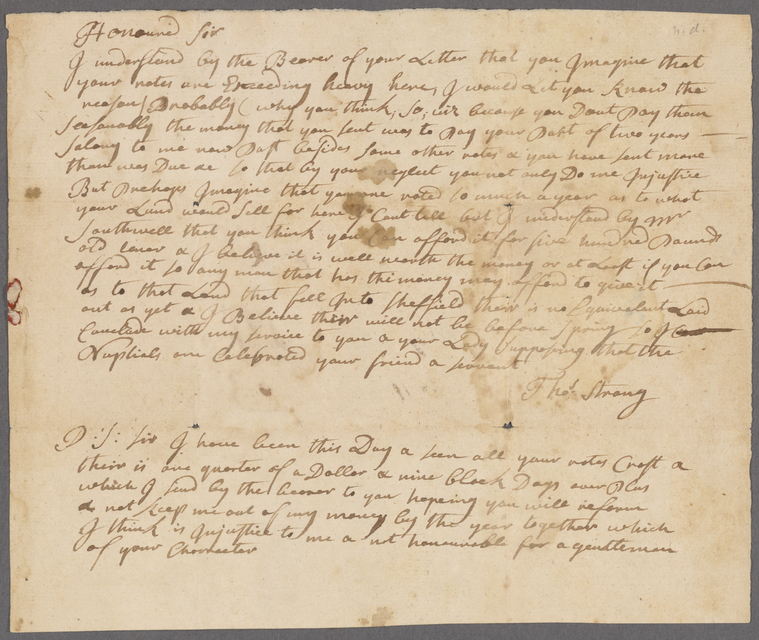 n.d.
Honoured Sir
I understand by the Bearer of your Letter that you Imagine that
your notes are Exceeding heavy here, I would Lit you Know the
reason (Probably) why you think, So; viz because you Dont Pay tham
Seasonably the money that you sent was to Pay your Part of two years
along to me now Past besides Some other notes & you have sent more
than was Due &c So that by your neglect you not only Do me Injustice
But Prehaps Imagine that you are voted So much a year as to what
your Land would Sell for here I Cant tell but I understand by Mr
Southwell that you think you Can afford it for five hundred Pounds
old tenor & I believe it is well worth the money or at Least if you Can
afford it So any man that has the money may afford to give it
as to that Land that fell Into Sheffield their is no Equivalent Laid
out as yet & I Believe their will not be before Spring So I
Conclude with my Service to you & your Lady Supposing that the
Nuptials are Celebrated your friend & Servant
Thos. Strong
P:S: Sir I have been this Day & seen all your notes Crost &
their is one quarter of a Dollar & nine block Days over Plus
which I send by the bearer to you hoping you will reform
& not Keep me out of my money by the year together which
I think is Injustice to me & not honourable for a gentleman
of your Character